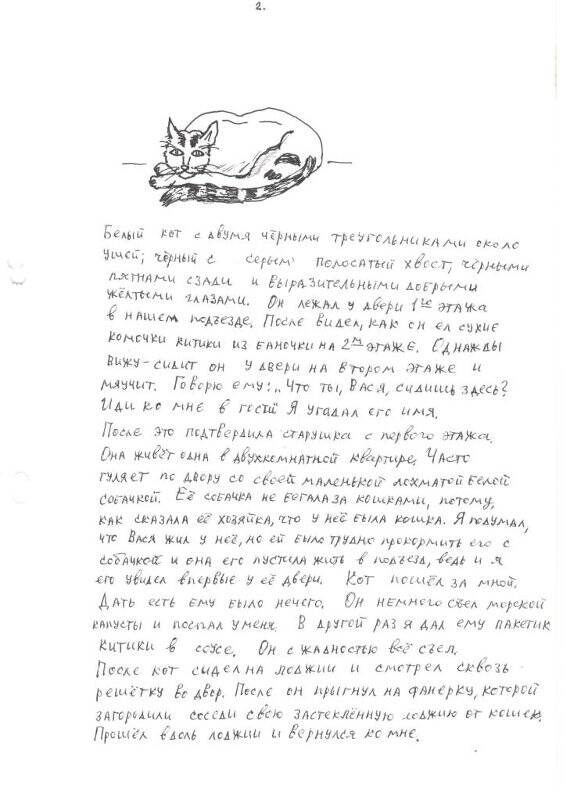 2.
Белый кот с двумя чёрными треугольниками около
ушей; чёрный с серым полосатый хвост, чёрными
пятнами сзади и выразительными добрыми
жёлтыми глазами. Он лежал у двери 1го этажа
в нашем подъезде. После видел, как он ел сухие
комочки китики из баночки на 2м этаже. Однажды
вижу-сидит он у двери на втором этаже и
мяучит. Говорю ему: „Что ты, Вася, сидишь здесь?
Иди ко мне в гости" Я угадал его имя.
После это подтвердила старушка с первого этажа.
Она живёт одна в двухкомнатной квартире. Часто
гуляет по двору со своей маленькой лохматой белой
собачкой. Её собачка не бегала за кошками, потому,
как сказала её хозяйка, что у неё была кошка. Я подумал,
что Вася жил у неё, но ей было трудно прокормить его с
собачкой и она его пустила жить в подъезд, ведь и я
его увидел впервые у её двери. Кот пошёл за мной.
Дать есть ему было нечего. Он немного съел морской
капусты и поспал у меня. В другой раз я дал ему пакетик
китики в соусе. Он с жадностью всё съел.
После кот сидел на лоджии и смотрел сквозь
решётку во двор. После он прыгнул на фанерку, которой
загородили соседи свою застеклённую лоджию от кошек.
Прошёл вдоль лоджии и вернулся ко мне.